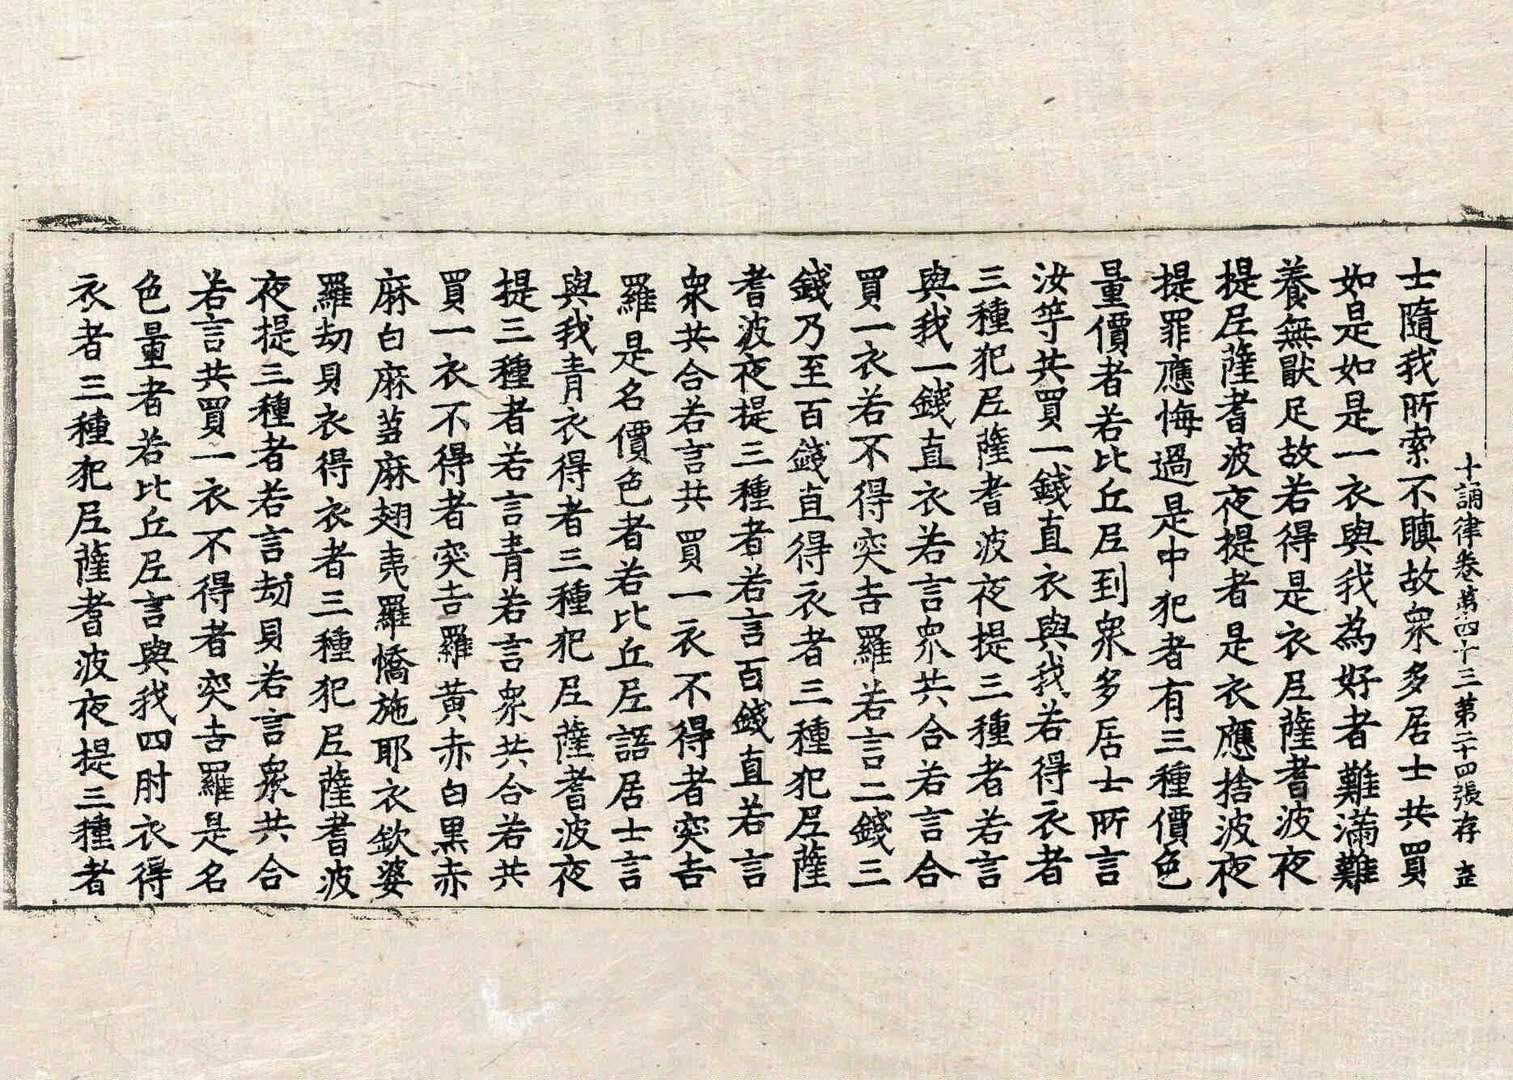 十誦律卷第四十三第二十四張存 㱏
士隨我所索不瞋故衆多居士共買
如是如是一衣與我為好者難滿難
養無猒足故若得是衣尼薩耆波夜
提尼薩耆波夜提者是衣應捨波夜
提罪應悔過是中犯者有三種價色
量價者若比丘尼到衆多居士所言
汝等共買一錢直衣與我若得衣者
三種犯尼薩耆波夜提三種者若言
與我一錢直衣若言衆共合若言合
買一衣若不得突吉羅若言二錢三
錢乃至百錢直得衣者三種犯尼薩
耆波夜提三種者若言百錢直若言
衆共合若言共買一衣不得者突吉
羅是名價色者若比丘尼語居士言
與我青衣得者三種犯尼薩耆波夜
提三種者若言青若言衆共合若共
買一衣不得者突吉羅黄赤白黒赤
麻白麻芻麻翅夷羅憍施耶衣欽婆
羅劫貝衣得衣者三種犯尼薩耆波
夜提三種者若言劫貝若言衆共合
若言共買一衣不得者突吉羅是名
色量者若比丘尼言與我四肘衣得
衣者三種犯尼薩耆波夜提三種者